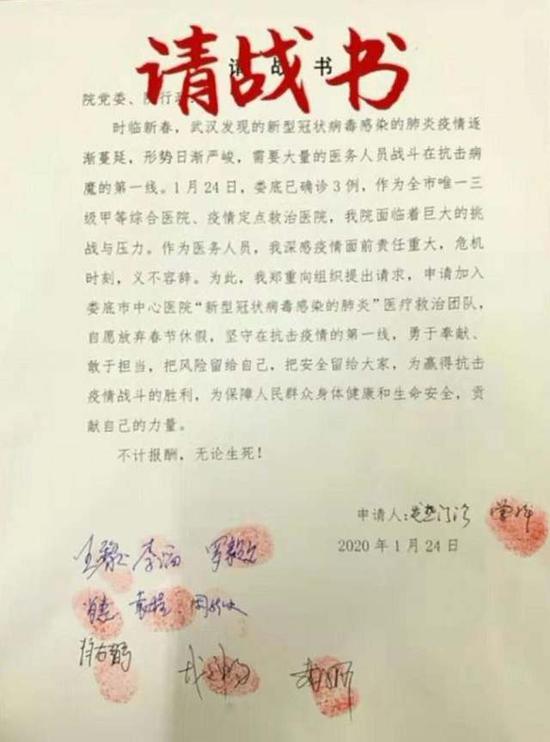 请战书
请战书
院党委、院行政
时临新春，武汉发现的新型冠状病毒感染的肺炎疫情逐
渐蔓延，形势日渐严峻，需要大量的医务人员战斗在抗击病
魔的第一线。1月24日，娄底已确诊3例，作为全市唯一三
级甲等综合医院、疫情定点救治医院，我院面临着巨大的挑
战与压力。作为医务人员，我深感疫情面前责任重大，危机
时刻，义不容辞。为此，我郑重向组织提出请求，申请加入
娄底市中心医院“新型冠状病毒感染的肺炎”医疗救治团队，
自愿放弃春节休假，坚守在抗击疫情的第一线，勇于奉献、
敢于担当，把风险留给自己，把安全留给大家，为赢得抗击
疫情战斗的胜利，为保障人民群众身体健康和生命安全，贡
献自己的力量。
不计报酬，无论生死！
申请人：
2020年1月24日